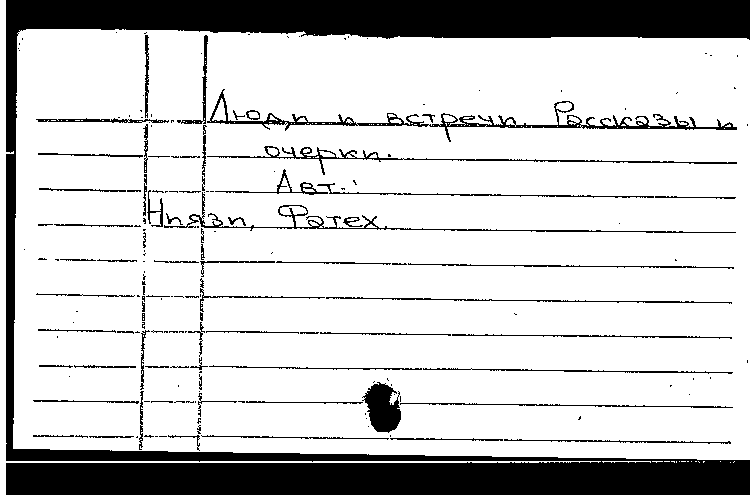 Люди и встречи. Рассказы и
очерки.
Авт.:
Ниязи, Фатех.